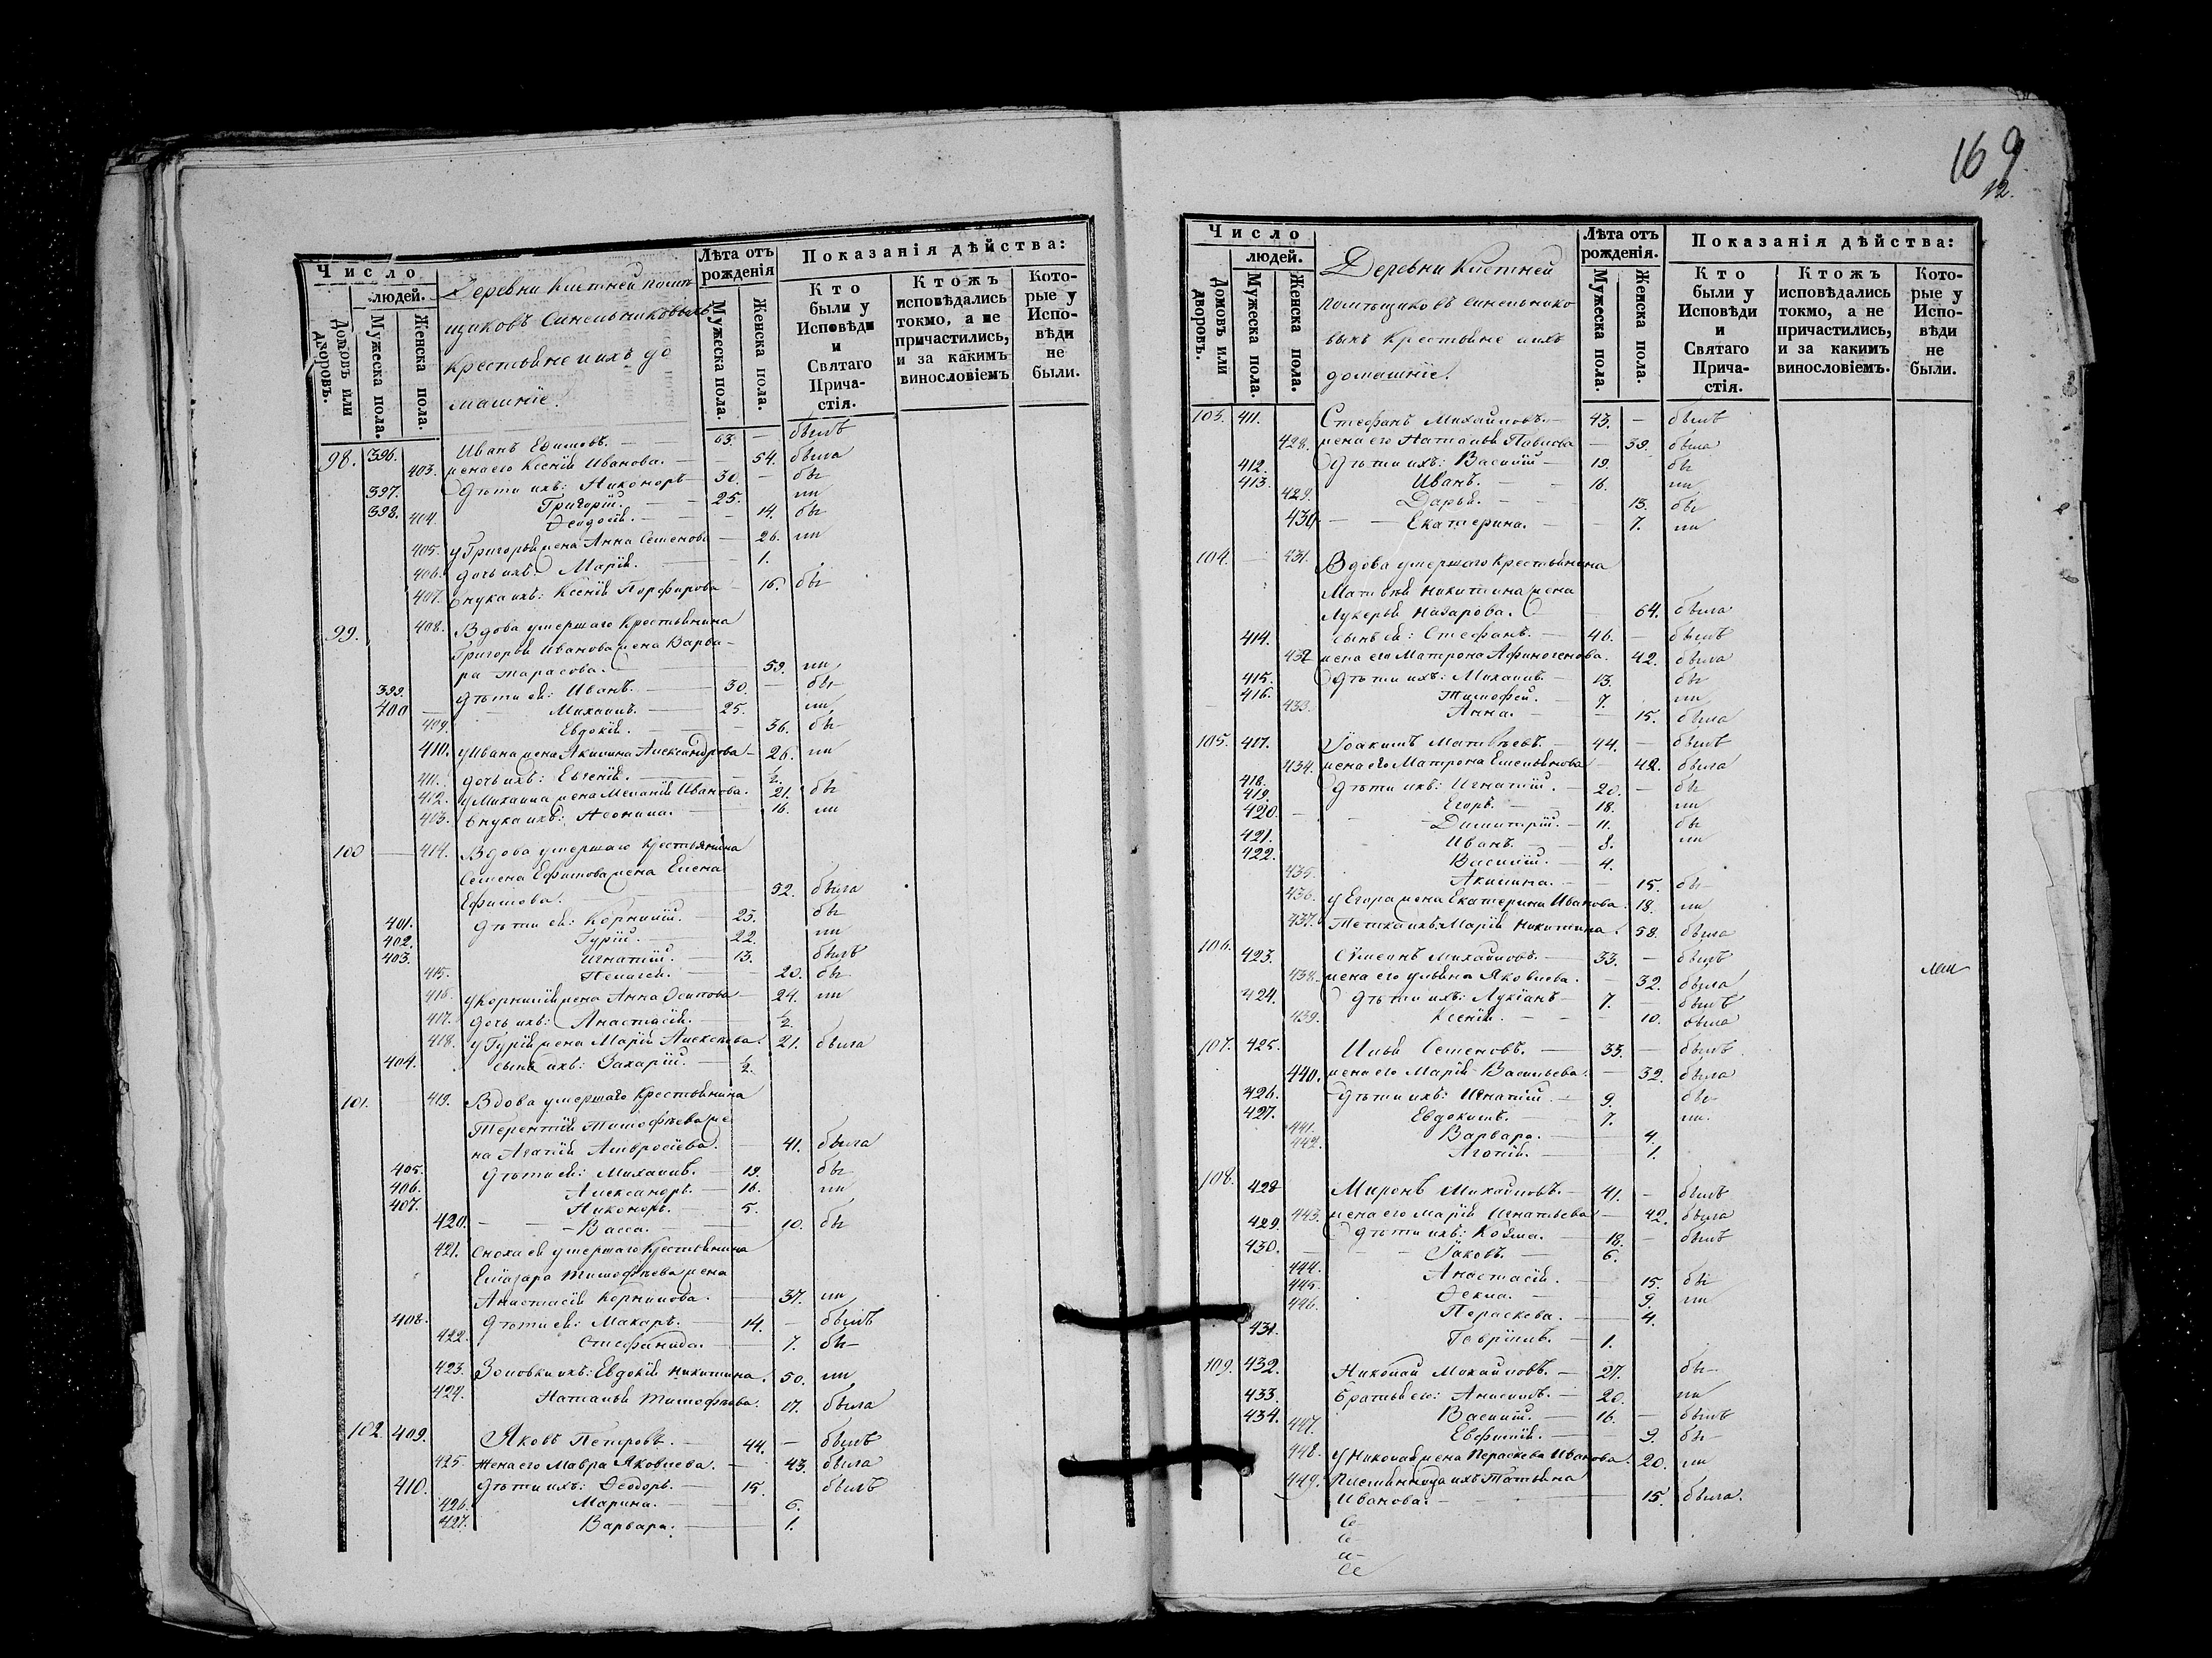 169
12.
Число
людей.
Домовъ или дворовъ.
Мужеска пола.
Женска пола.
Деревни Кистней помѣ
щиковъ Синельниковыхъ
крестьяне и ихъ до
машніе.
Лѣта отъ рожденія
Мужеска пола.
Женска пола.
Показанія дѣйства:
Кто были у Исповѣди и Святаго Причастія.
Ктожъ исповѣдались токмо, а не причастились, и за какимъ винословіемъ
Которые у Исповѣди не были.
98. 396. Иванъ Ефимовъ. 63. — былъ
403. жена его Ксенія Иванова. — 54. была
397. Дѣти ихъ: Никоноръ 30. — бы
398. Григорій. 25. ли
404. Ѳеодосія. 14. бы
405. у Григорья жена Анна Семенова 26. ли
406. дочь ихъ: Марія. 1.
407. Внука ихъ: Ксенія Порфирова 16. бы
99. 408. Вдова умершаго Крестьянина
Григорья Иванова жена Варва-
ра Тарасова. 59. ли
399. дѣти ея: Иванъ. 30. — бы
400 Михаилъ. 25. ли
409. Евдокія. 36. бы
410. у Ивана жена Акилина Александрова 26. ли
411. дочь ихъ: Евгенія. 1/2.
412. у Михаила жена Меланія Иванова. 21. бы
403. внука ихъ: Леонила. 16. ли
100 414. Вдова умершаго Крестьянина
Семена Ефимова жена Елена
Ефимова. 52. была
401. дѣти ея: Корнилій. 23. бы
402. Гурій. 22. ли
403. Игнатій. 13. былъ
415. Пелагея. 20. бы
416. у Корнилія жена Анна Осипова 24. ли
417. дочь ихъ: Анастасія. 1/2.
418. у Гурія жена Марія Алексеева. 21. была
404. сынъ ихъ: Захарій. 1/2.
101. 419. Вдова умершаго Крестьянина
Терентія Тимофѣева же
на Агапія Амвросіева. 41. была
405. дѣти ея: Михаилъ. 19. бы
406. Александръ. 16. ли
407. Никоноръ. 5.
420. Васса. 10. бы
421. Сноха ея умершаго Крестьянина
Елиазара Тимофѣева жена
Анастасія Корнилова. 37. ли
408. дѣти ея: Макаръ. 14. — былъ
422. Стефанида. 7. бы
423. Золовки ихъ: Евдокія Никитина. 50. ли
424. Наталья Тимофѣева. 17. была
102. 409. Яковъ Петровъ. 44. — былъ
425. Жена его Мавра Яковлева. 43. была
410. дѣти ихъ: Ѳеодоръ. 15. былъ
426. Марина. 6.
427. Варвара. 1.
Число
людей.
Домовъ или дворовъ.
Мужеска пола.
Женска пола.
Деревни Кистней
помѣщиковъ Синельнико
выхъ Крестьяне и ихъ
домашніе.
Лѣта отъ рожденія.
Мужеска пола.
Женска пола.
Показанія дѣйства:
Кто были у Исповѣди и Святаго Причастія.
Ктожъ исповѣдались токмо, а не причастились, и за какимъ винословіемъ.
Которые у Исповѣди не были.
103. 411. Стефанъ Михайловъ. 43. — былъ
428. жена его Наталья Павлова — 39. была
412. Дѣти ихъ: Василій 19. бы
413. Иванъ. 16. ли
429. Дарья. 13. бы
430. Екатерина. 7. ли
104. 431. Вдова умершаго Крестьянина
Матвѣя Никитина жена
Лукерья Назарова. 64. была
414. сынъ ея: Стефанъ. 46. — былъ
432 жена его Матрона Афиногенова. 42. была
415. Дѣти ихъ: Михаилъ 13. бы
416. Тимофей. 7. ли
433. Анна. 15. была
105. 417. Іоакимъ Матвѣевъ. 44. — былъ
434. жена его Матрона Емельянова 42. была
418. Дѣти ихъ: Игнатій. 20. — бы
419. Егоръ. 18. ли
420. Димитрій. 11. бы
421. Иванъ. 8. ли
422. Василій. 4.
435. Акилина. 15. бы
436. у Егора жена Екатерина Иванова. 18. ли
437. Тетка ихъ: Марія Никитина. 58. была
106. 423. Сѵмеонъ Михайловъ. 33. — былъ
438. жена его Ульяна Яковлева. 32. была
424. Дѣти ихъ: Лукіанъ 7. — былъ
439. Ксенія. 10. была
107. 425. Илья Семеновъ. 33. — былъ
440. жена его Марія Васильева. 32. была
426. Дѣти ихъ: Игнатій. 9. бы
427. Евдокимъ. 7. ли.
441. Варвара. 4.
442. Агапія. 1.
108. 428 Миронъ Михайловъ. 41. — былъ
443. жена его Марія Игнатьева 42. была
429. Дѣти ихъ: Козма. 18. — былъ
430. Іаковъ. 6.
444. Анастасія. 15. бы
445. Ѳекла. 9. ли
446. Параскева. 4.
431. Гавріилъ. 1.
109. 432. Николай Михайловъ. 27. бы
433. братья его: Анисимъ. 20. ли
434. Василій. 16. — былъ
447. Евфимія. 9. бы
448. у Николая жена Параскева Иванова. 20. ли
449. Племянница ихъ Татьяна
Иванова. 15. была.